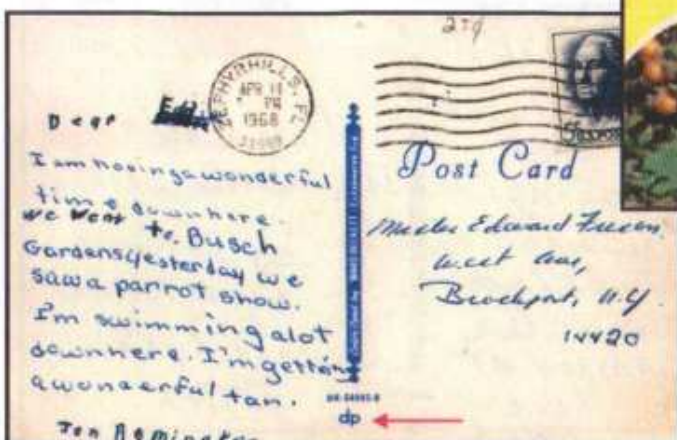 ZEPHYRHILLS, FL
APR 11
PM
1968
Dear
I am having a wonderful
time downhere.
we went to Busch
Gardens yesterday we
saw a parrot show.
I'm swimming alot
downhere. I'm getting
a wonderful tan.
Post Card
Edward
West Ave,
Brockport, N.Y.
14420
dp